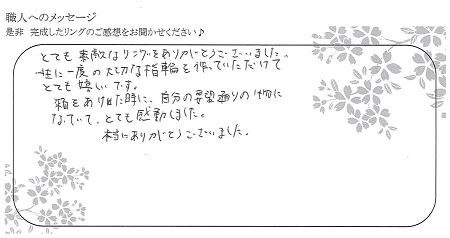 職人へのメッセージ
是非 完成したリングのご感想をお聞かせください♪
とても素敵なリングをありがとうございました。
一生に一度の大切な指輪を作っていただけて
とても嬉しいです。
箱をあけた時に、自分の要望通りの物に
なっていて、とても感動しました。
本当にありがとうございました。